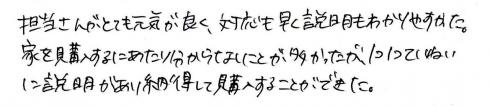 担当さんがとても元気が良く、対応も早く説明もわかりやすかった。
家を見購入するにあたり分からないことが多かったが、1つ1つていねい
に説明があり納得して購入することができた。